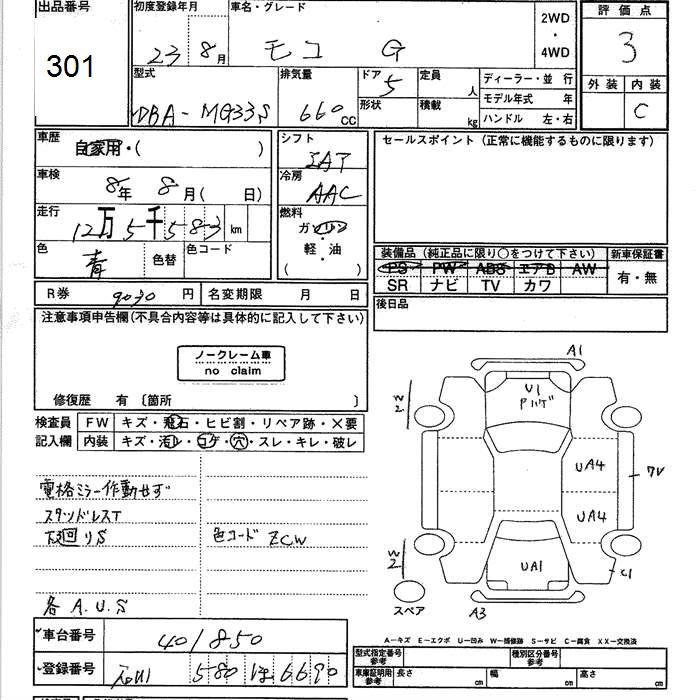 出品番号
301
初度登録年月
23 8月
車名・グレード
モコ G
2WD
・
4WD
評価点
3
外装 内装
C
型式
DBA-MG33S
排気量
660 cc
ドア 5
形状
定員 人
積載 kg
ディーラー・並 行
モデル年式 年
ハンドル 左・右
車歴
自家用・( )
車検
8年 8月( 日)
走行
12万5千583 km
色
青
色替
色コード
シフト
IAT
冷房
AAC
燃料
ガソリン
・
軽・油
( )
セールスポイント (正常に機能するものに限ります)
装備品 (純正品に限り○をつけて下さい)
PS PW ABS エアB AW
SR ナビ TV カワ
新車保証書
有・無
R券 9030 円
名変期限 月 日
後日品
注意事項申告欄(不具合内容等は具体的に記入して下さい)
ノークレーム車
no claim
修復歴 有 〔箇所 〕
検査員
記入欄
FW キズ・飛石・ヒビ割・リペア跡・×要
内装 キズ・汚レ・コゲ・穴・スレ・キレ・破レ
電格ミラー作動せず
スタッドレスT
下廻りS
色コード ZCW
各 A.U.S
A1
U1
W2
UA4
UA4
W2
UA1
C1
A3
スペア
A-キズ E-エクボ U-凹み W-補修跡 S-サビ C-腐食 XX-交換済
車台番号
401850
登録番号
石川 580 ほ 6690
型式指定番号
参考
種別区分番号
参考
車庫証明用
参考
長さ cm
幅 cm
高さ cm